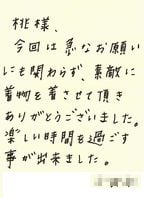 桃様、
今回は急なお願い
にも関わらず、素敵に
着物を着させて頂き
ありがとうございました。
楽しい時間を過ごす
事が出来ました。